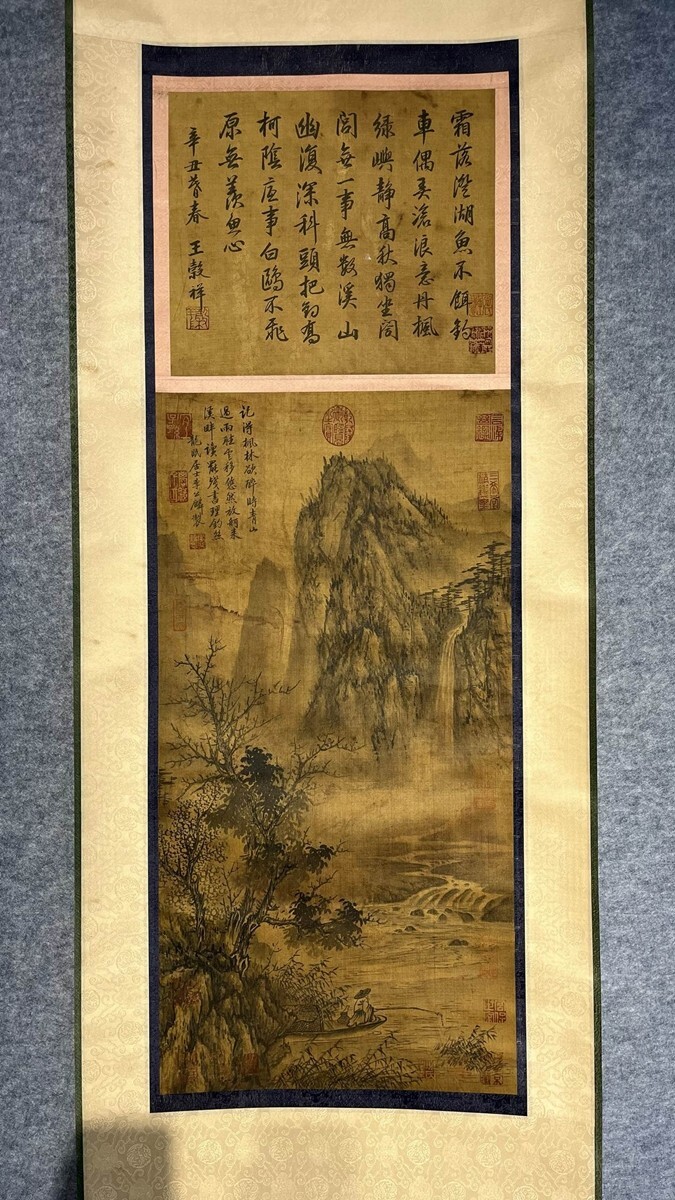 霜落澄湖魚不餌釣
車偶弄滄浪意丹楓
綠嶼靜高秋獨坐閒
閒無一事無數溪山
幽復深科頭把釣高
柯陰底事白鷗不飛
原無羨魚心
辛丑暮春 王穀祥
記得楓林欲醉時青山
過雨雲移悠然放舸來
溪畔讀罷殘書理釣絲
龍眠居士李公麟製